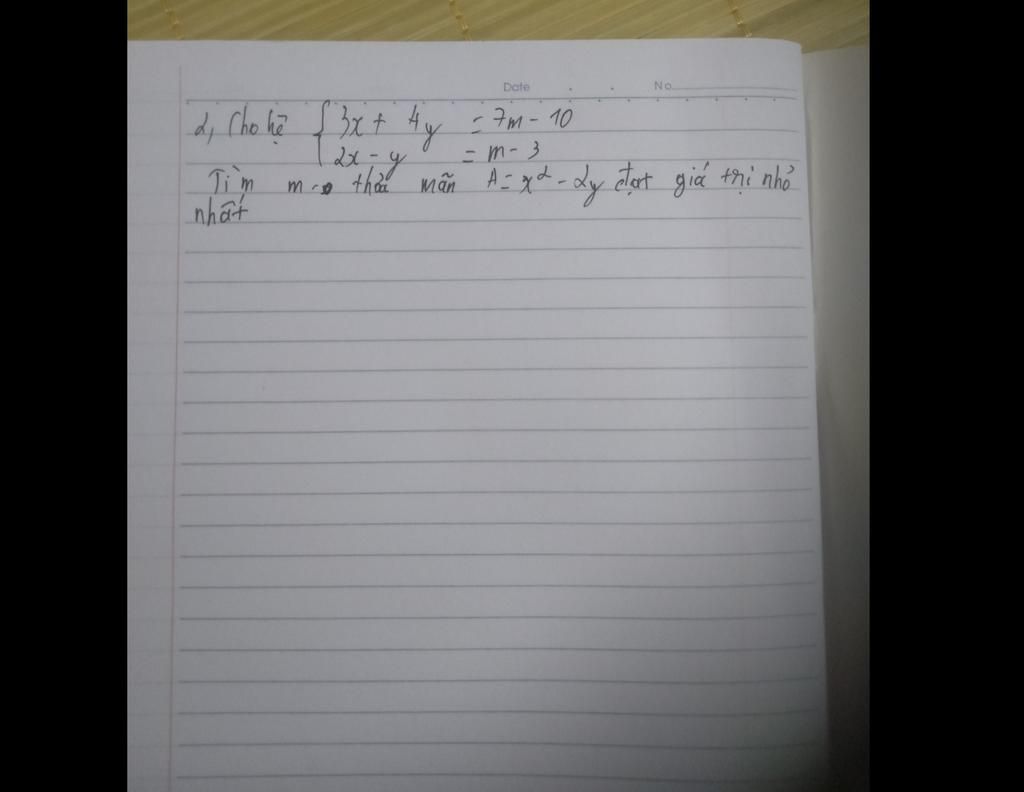 Date . . No
2, Cho hệ { 3x + 4y = 7m - 10
2x - y = m - 3
Tìm m thỏa mãn A = x² - 2y đạt giá trị nhỏ
nhất